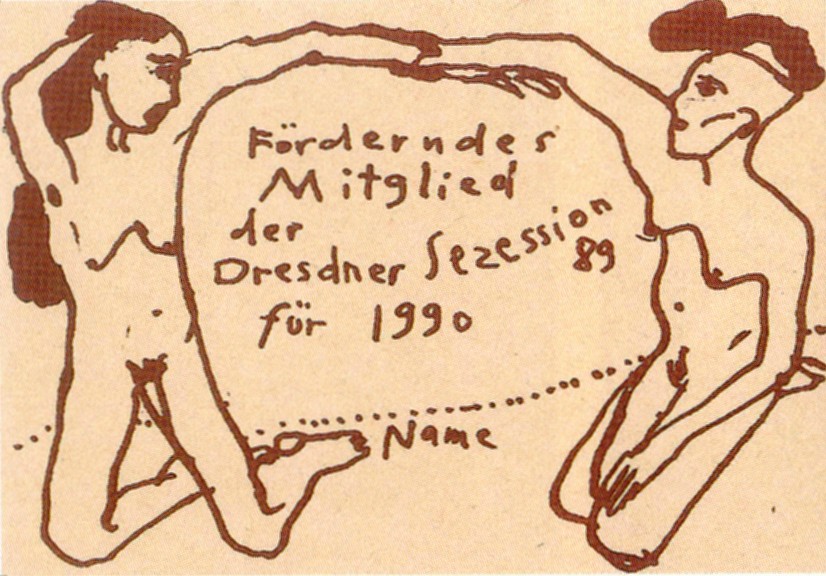 Förderndes
Mitglied
der
Dresdner Sezession
89
für 1990
Name